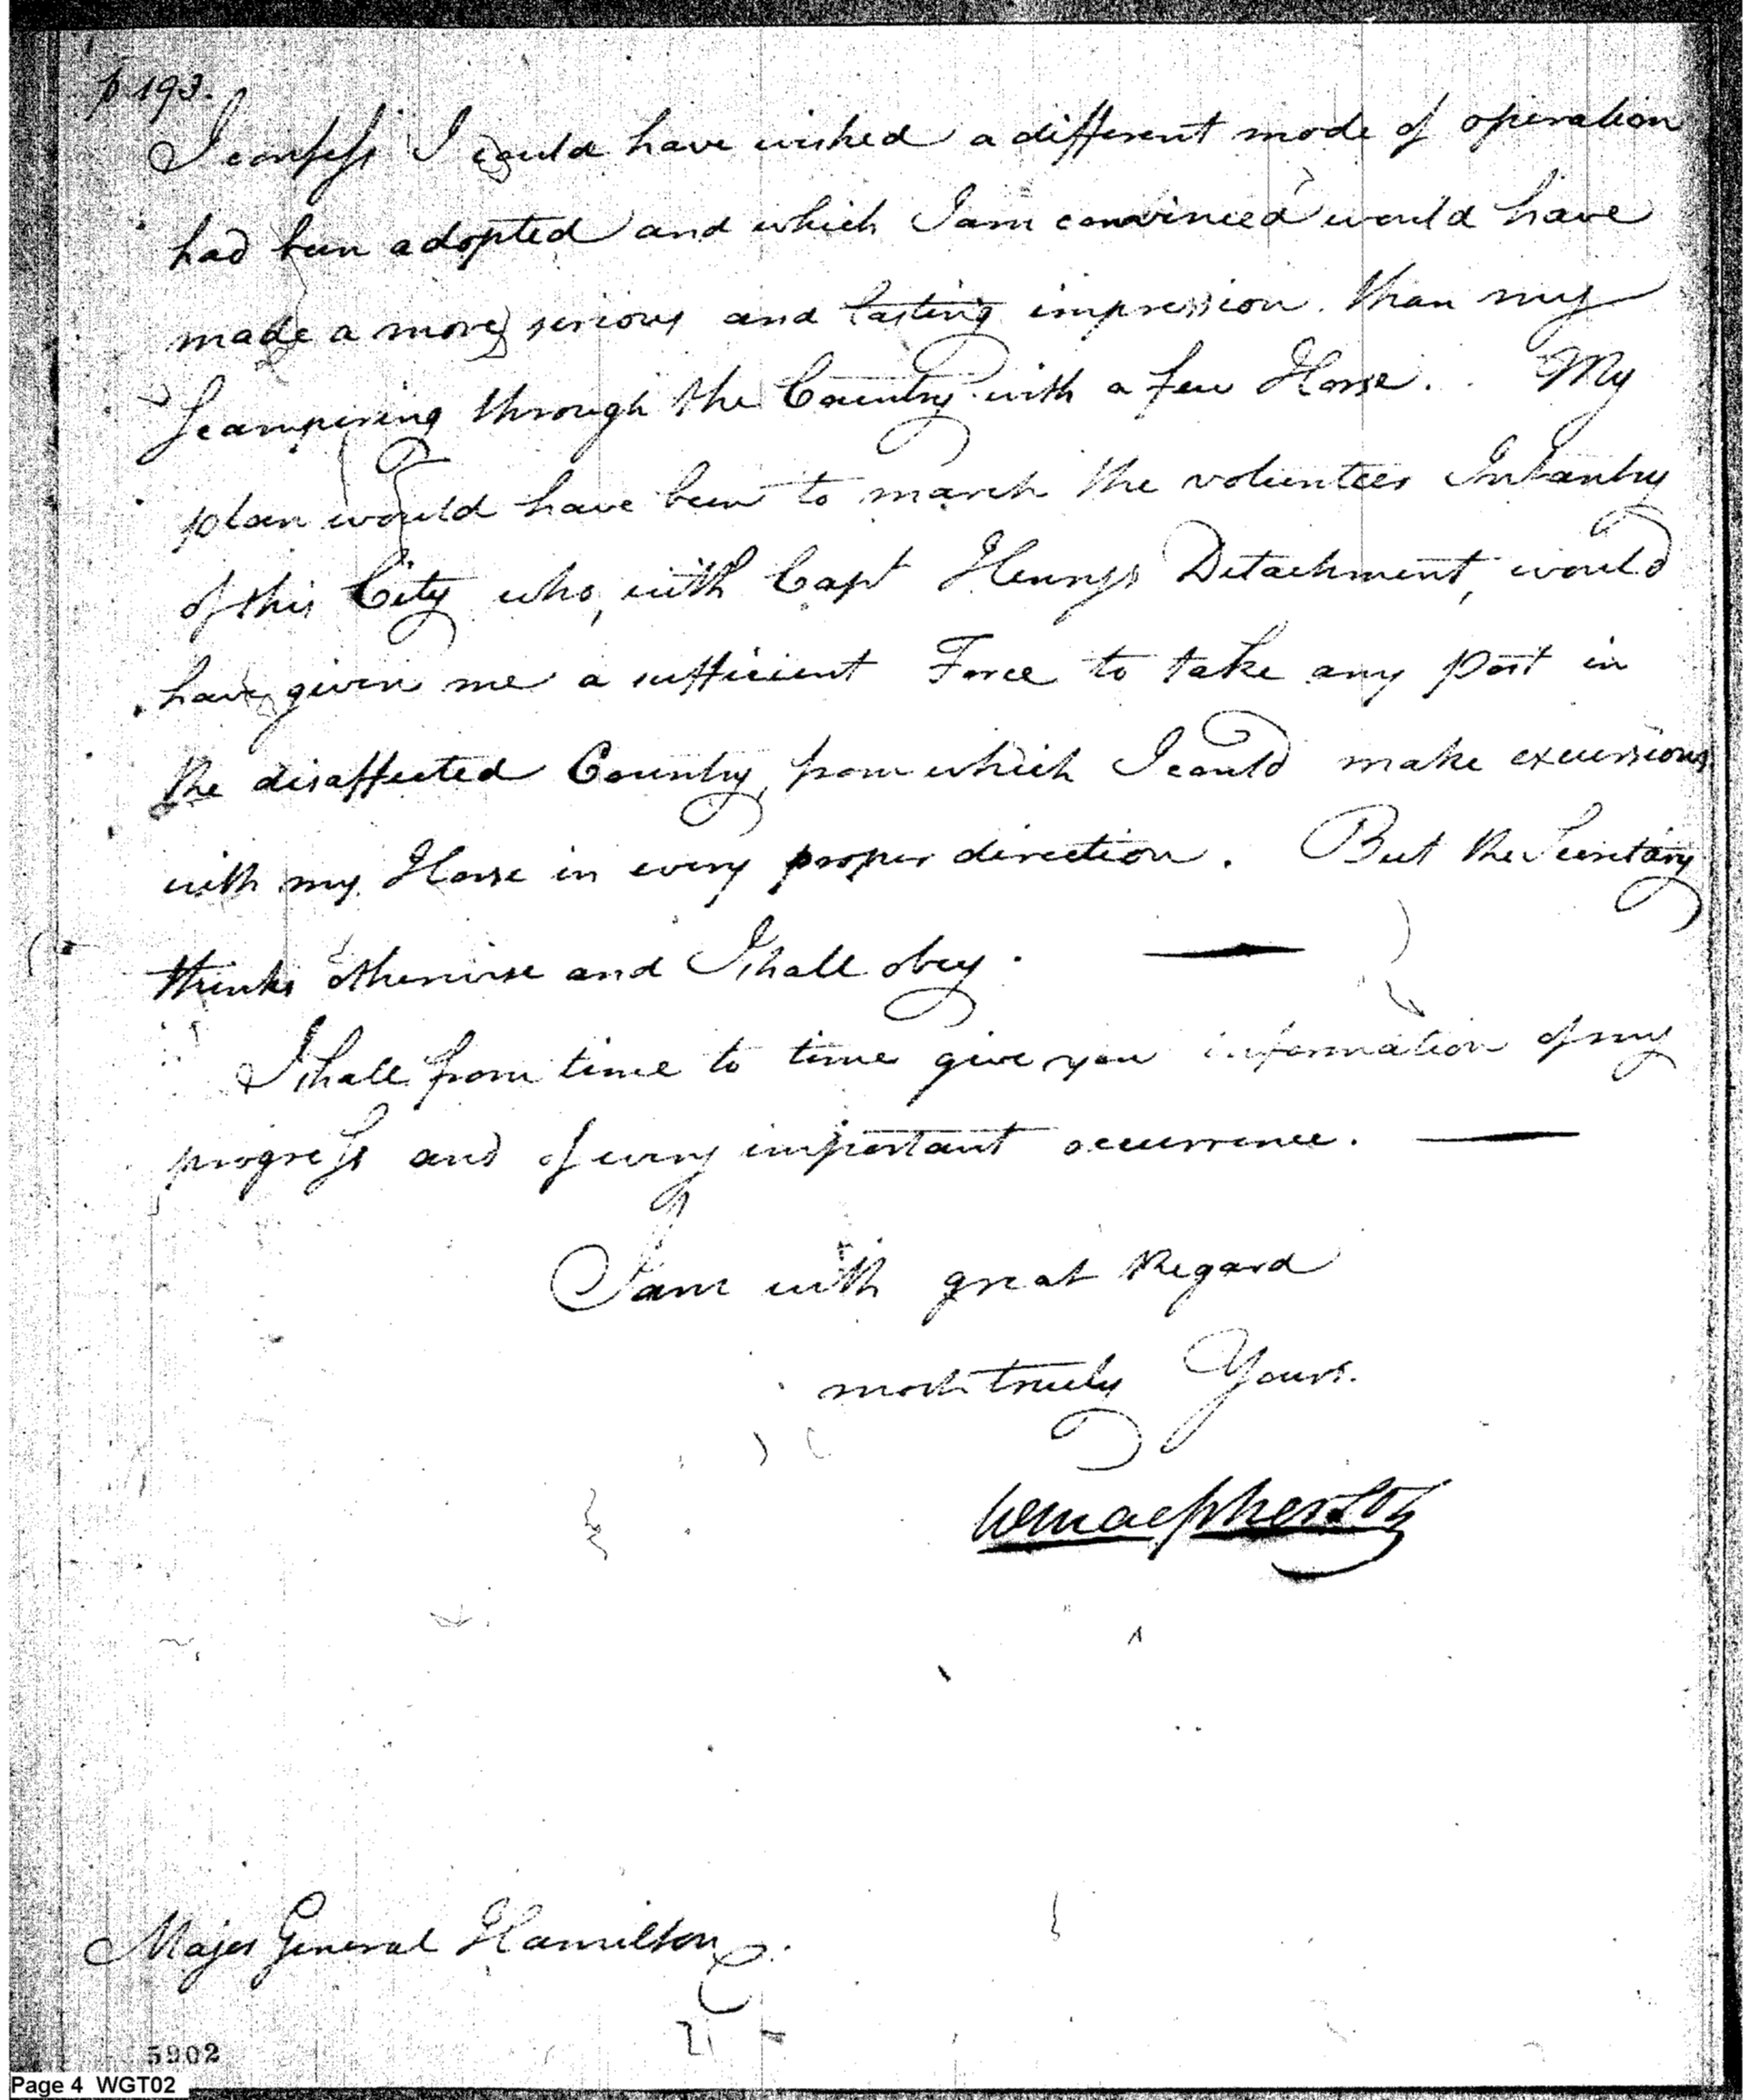 p 193.
I confess I could have wished a different mode of operation
had been adopted and which I am convinced would have
made a more serious and lasting impression. than my
Scampering through the Country with a few Horse. My
plan would have been to march the volunteer Infantry
of this City who, with Capt Henrys Detachment, would
have given me a sufficient Force to take any Post in
the disaffected Country, from which I could make excursions
with my Horse in every proper direction. But the Secretary
thinks otherwise and I shall obey.
I shall from time to time give you information of my
progress and of every important occurrence.
I am with great Regard
most truly Yours.
WMacpherson
Major General Hamilton
5902
Page 4 WGT02